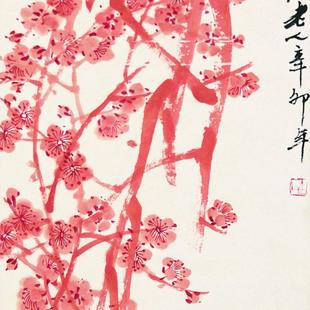 老人辛卯年